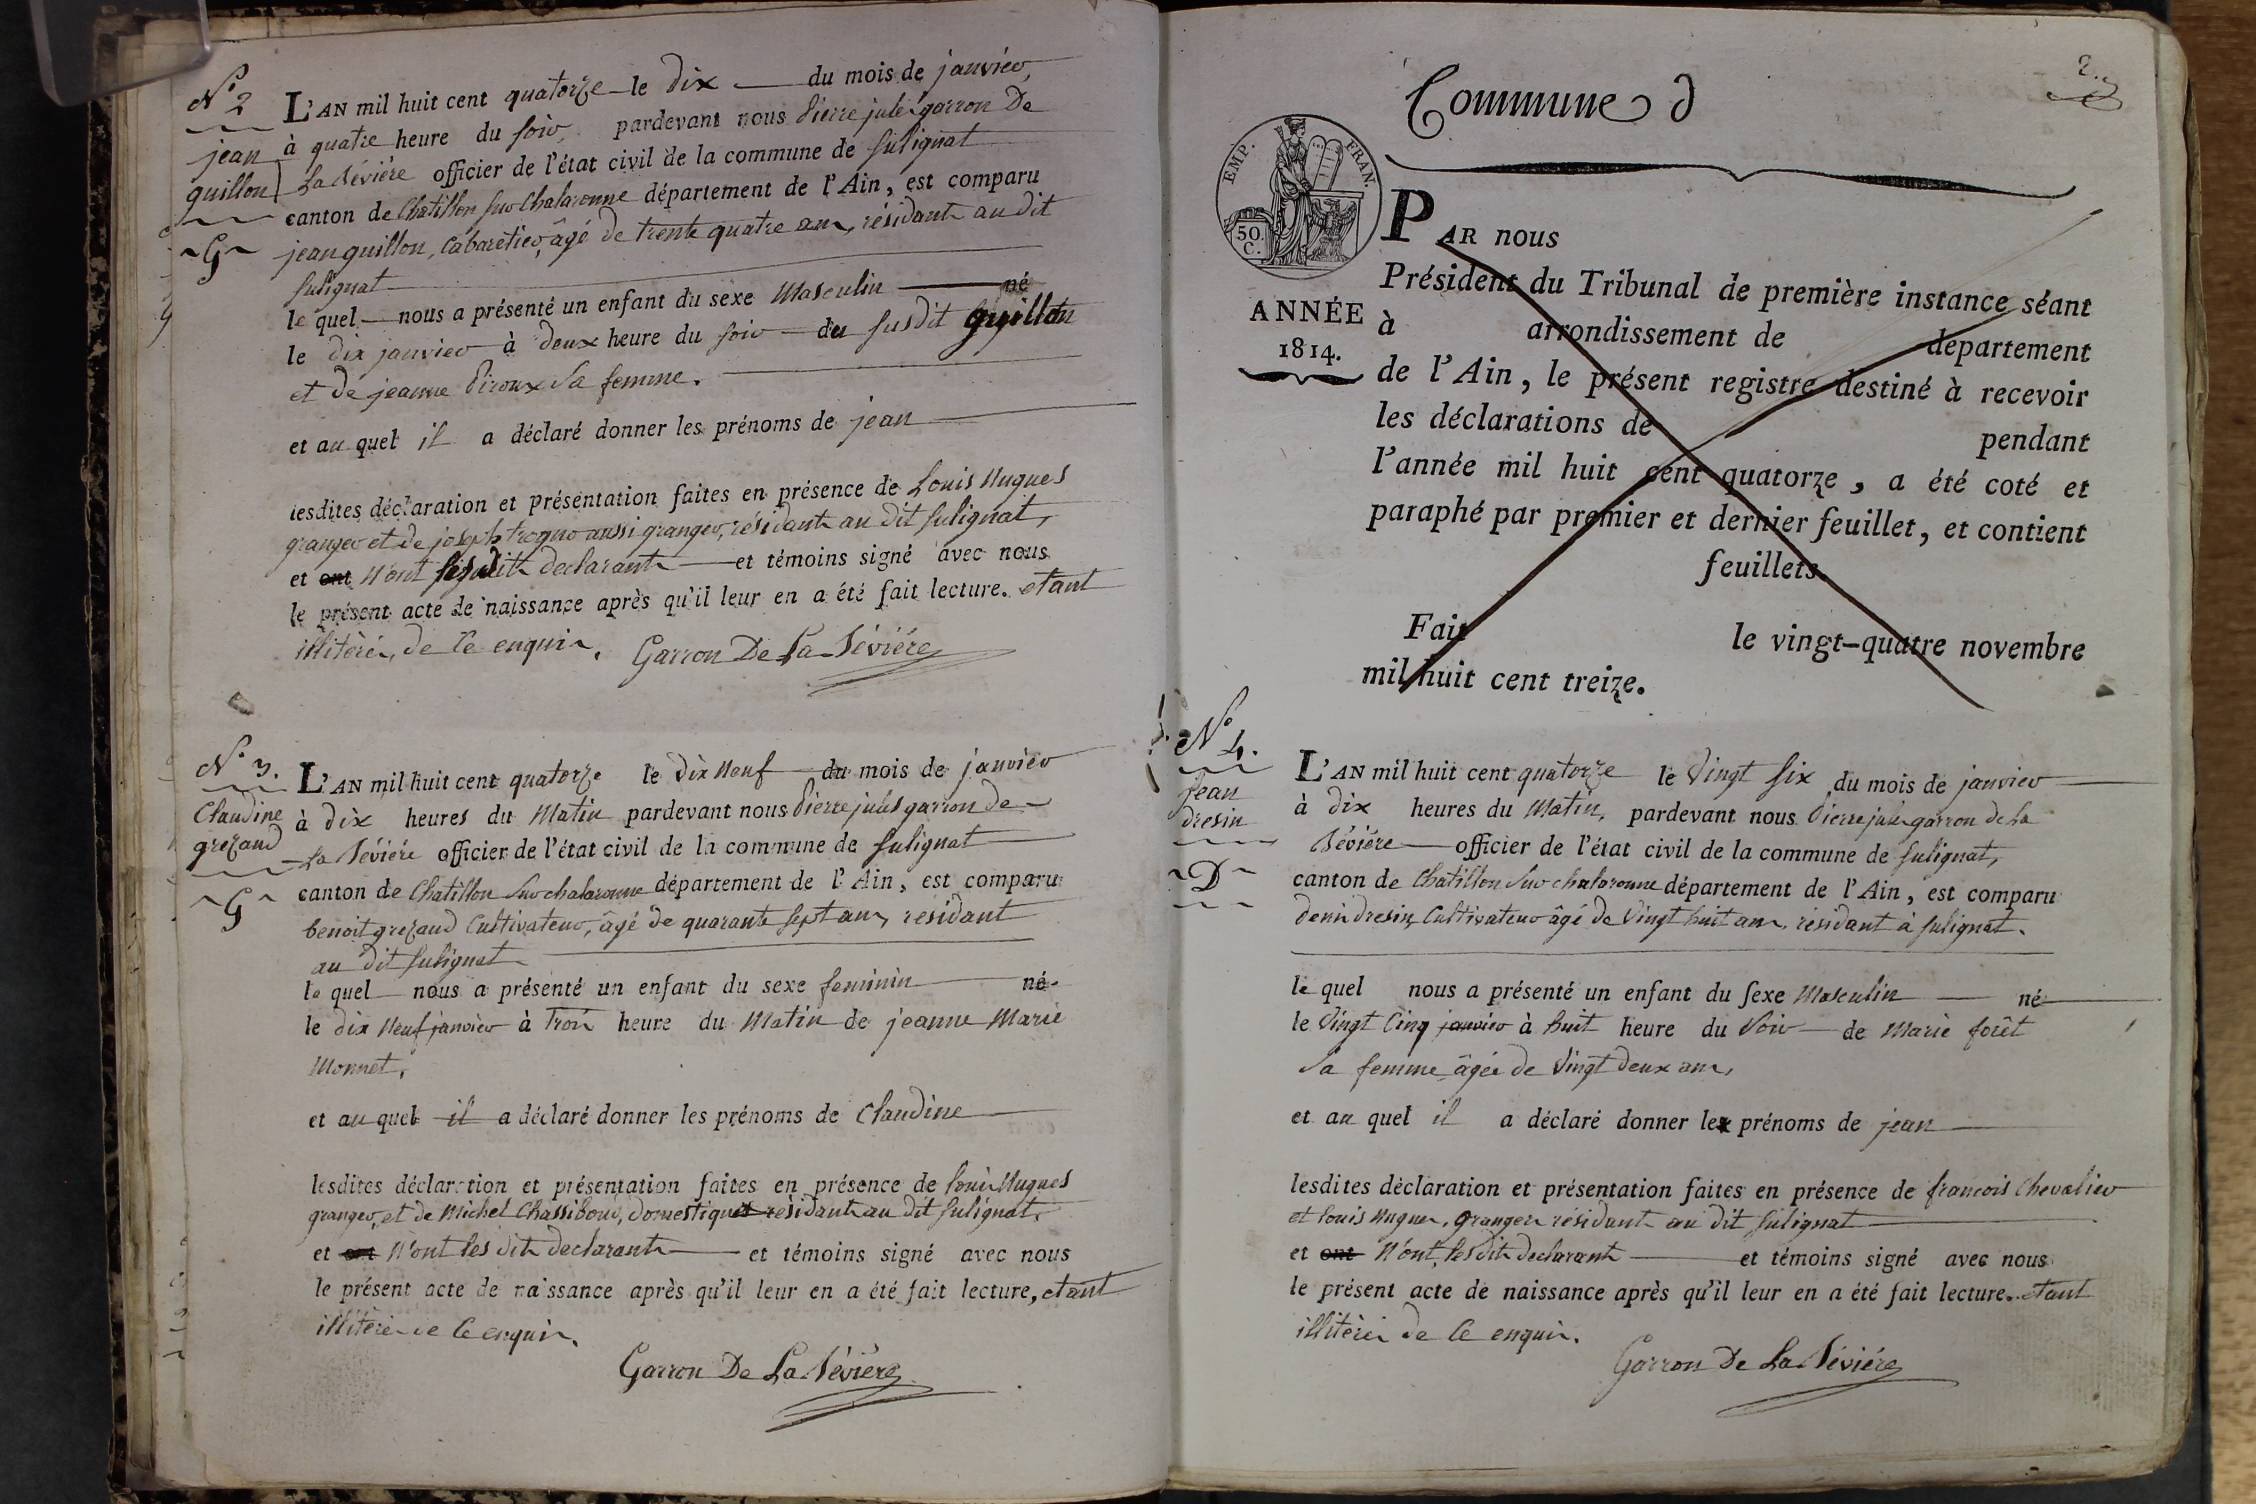 N° 2
jean
guillon
~G~
L'AN mil huit cent quatorze le dix du mois de janvier,
à quatre heure du soir, pardevant nous Pierre jules garron De
La Sévière officier de l'état civil de la commune de sulignat
canton de Chatillon sur Chalaronne département de l'Ain, est comparu
jean guillon, Cabaretier, âgé de trente quatre ans, résidant au dit
sulignat
le quel nous a présenté un enfant du sexe Masculin né
le dix janvier à deux heure du soir du susdit guillon
et de jeanne Piroux sa femme.
et au quel il a déclaré donner les prénoms de jean
lesdites déclaration et présentation faites en présence de Louis Hugues
granger et de joseph aussi granger, résidants au dit sulignat,
et ont N'ont lesdits declarants et témoins signé avec nous
le présent acte de naissance après qu'il leur en a été fait lecture. etant
illitérés, de ce enquis. Garron De La Sévière
N° 3.
Claudine
grezaud
~G~
L'AN mil huit cent quatorze le dix Neuf du mois de janvier
à dix heures du Matin pardevant nous Pierre jules garron de
La Sévière officier de l'état civil de la commune de sulignat
canton de Chatillon sur chalaronne département de l'Ain, est comparu
benoit grezaud Cultivateur, âgé de quarante sept ans, residant
au dit sulignat
le quel nous a présenté un enfant du sexe feminin né
le dix Neuf janvier à trois heure du Matin de jeanne Marie
Monnet,
et au quel il a déclaré donner les prénoms de Claudine
lesdites déclaration et présentation faites en présence de Louis Hugues
granger, et de Michel Chassibout, domestique résidants au dit sulignat,
et ont N'ont les dits declarants et témoins signé avec nous
le présent acte de naissance après qu'il leur en a été fait lecture, etant
illitérés de ce enquis.
Garron De La Sévière
2.
Commune d
EMP. FRAN.
50.
C.
ANNÉE
1814.
PAR nous
Président du Tribunal de première instance séant
à arrondissement de département
de l'Ain, le présent registre destiné à recevoir
les déclarations de pendant
l'année mil huit cent quatorze, a été coté et
paraphé par premier et dernier feuillet, et contient
feuillets.
Fait le vingt-quatre novembre
mil huit cent treize.
N° 4.
jean
dresin
~D~
L'AN mil huit cent quatorze le Vingt six du mois de janvier
à dix heures du Matin, pardevant nous Pierre jules garron de La
Sévière officier de l'état civil de la commune de sulignat,
canton de Chatillon sur chalaronne département de l'Ain, est comparu
denis dresin, Cultivateur âgé de Vingt huit ans, résidant à sulignat.
le quel nous a présenté un enfant du sexe Masculin né
le Vingt Cinq janvier à huit heure du Soir de Marie forêt
sa femme âgée de Vingt deux ans,
et au quel il a déclaré donner les prénoms de jean
lesdites déclaration et présentation faites en présence de francois Chevalier
et Louis Hugues, grangers résidants au dit sulignat
et ont N'ont, les dits declarants et témoins signé avec nous
le présent acte de naissance après qu'il leur en a été fait lecture. etant
illitérés de ce enquis.
Garron De La Sévière